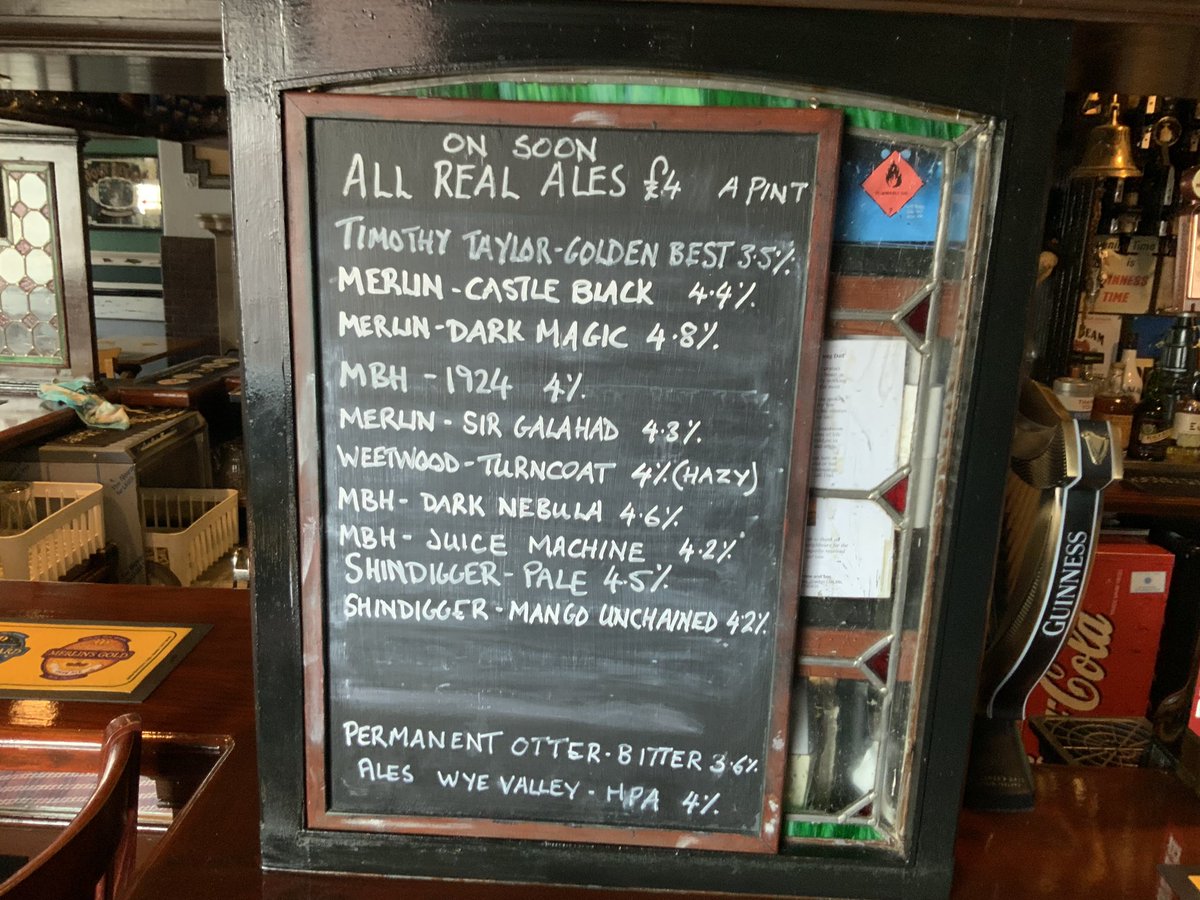 ON SOON
ALL REAL ALES £4 A PINT
TIMOTHY TAYLOR-GOLDEN BEST 3.5%
MERLIN - CASTLE BLACK 4.4%
MERLIN - DARK MAGIC 4.8%
MBH - 1924 4%
MERLIN - SIR GALAHAD 4.3%
WEETWOOD - TURNCOAT 4% (HAZY)
MBH - DARK NEBULA 4.6%
MBH - JUICE MACHINE 4.2%
SHINDIGGER - PALE 4.5%
SHINDIGGER - MANGO UNCHAINED 4.2%
PERMANENT OTTER - BITTER 3.6%
ALES WYE VALLEY - HPA 4%
MERLIN'S GOLD
GUINNESS
Coca-Cola
TIME
BEAM